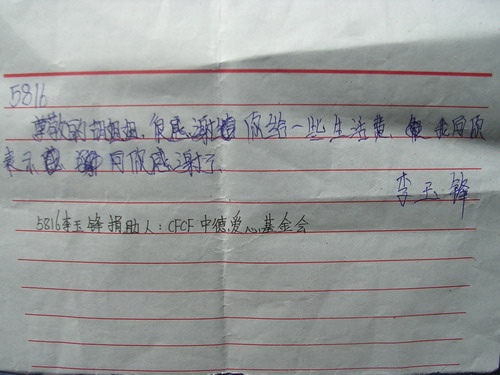 5816
尊敬的胡姐姐,很感谢你给一些生活费,我同你
表示 同你感谢了
李玉锋
5816李玉锋捐助人:CFCF中德爱心基金会